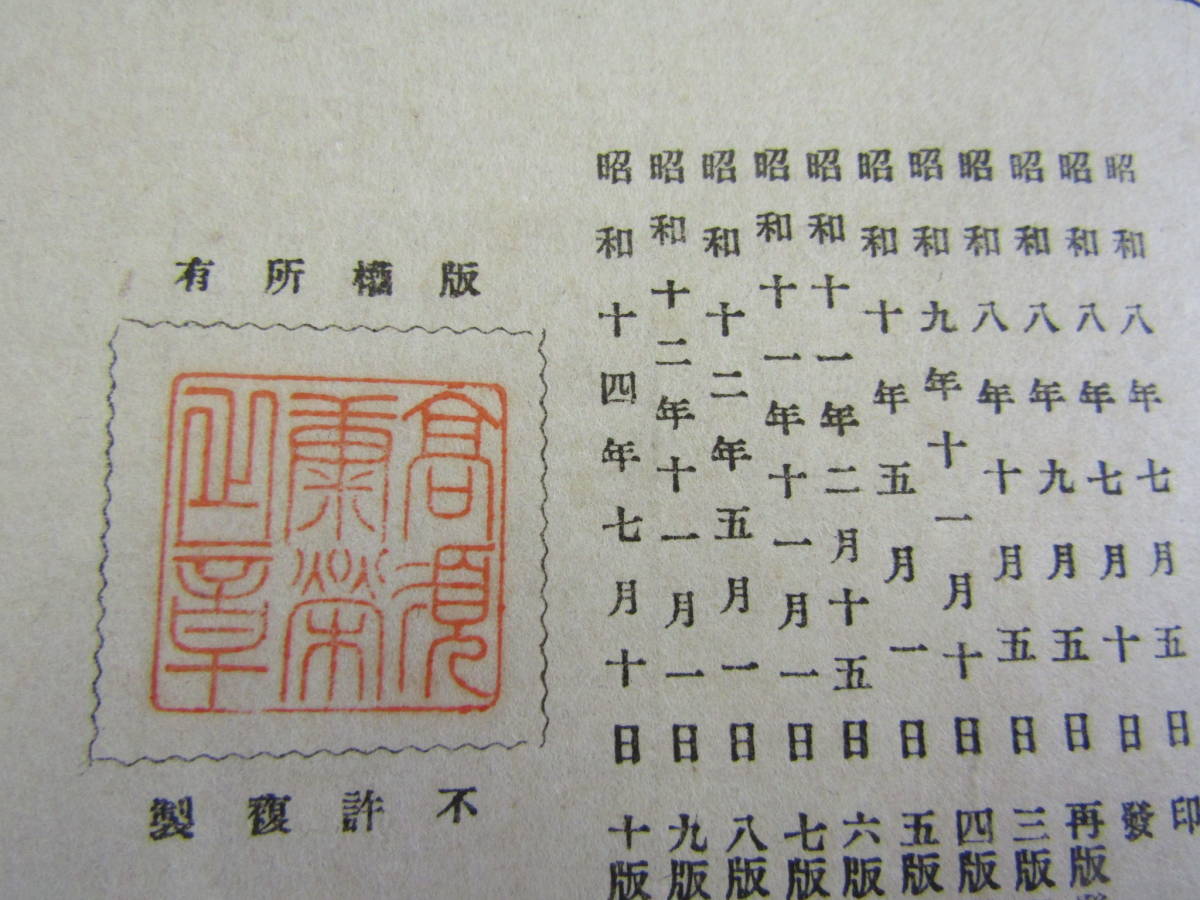 昭和八年七月五日印
昭和八年七月十日發
昭和八年九月五日再版
昭和八年十月五日三版
昭和九年十一月十日四版
昭和十年五月一日五版
昭和十一年二月十五日六版
昭和十一年十一月一日七版
昭和十二年五月一日八版
昭和十二年十一月一日九版
昭和十四年七月十日十版
版權所有
高須
秉榮
之章
不許複製